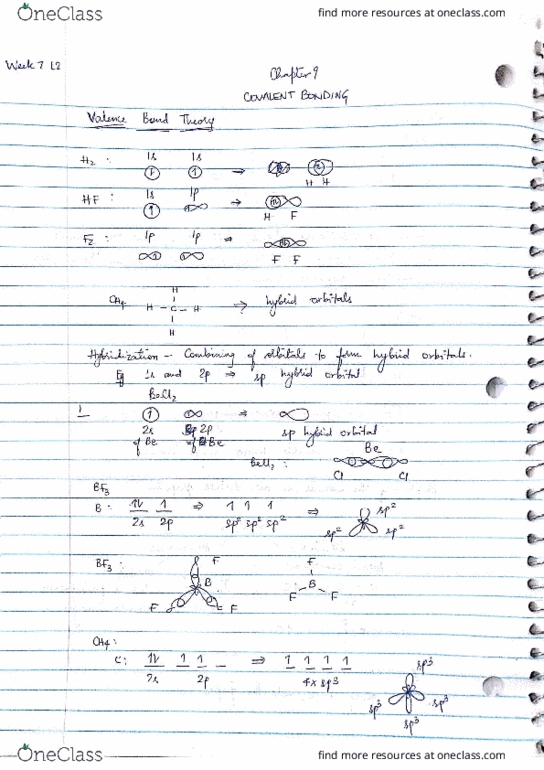 OneClass find more resources at oneclass.com
Week 7 L2
Chapter 9
COVALENT BONDING
Valence Bond Theory
H₂ : 1s 1s →
H H
HF : 1s 1p →
H F
F₂ : 1p 1p →
F F
H
CH₄ H - C - H → hybrid orbitals
H
Hybridization - Combining of orbitals to form hybrid orbitals.
Eg 1s and 2p ⇒ sp hybrid orbital
BeCl₂
1 ⇒
2s 2p sp hybrid orbital
of Be of Be
BeCl₂ : Be
Cl Cl
BF₃
B : 1l 1 ⇒ 1 1 1 ⇒ sp²
2s 2p sp² sp² sp² sp² sp²
BF₃ : F F
B B
F F F F
CH₄ :
C : 1l 1 1 _ ⇒ 1 1 1 1 sp³
2s 2p 4 x sp³
sp³ sp³
sp³
OneClass find more resources at oneclass.com